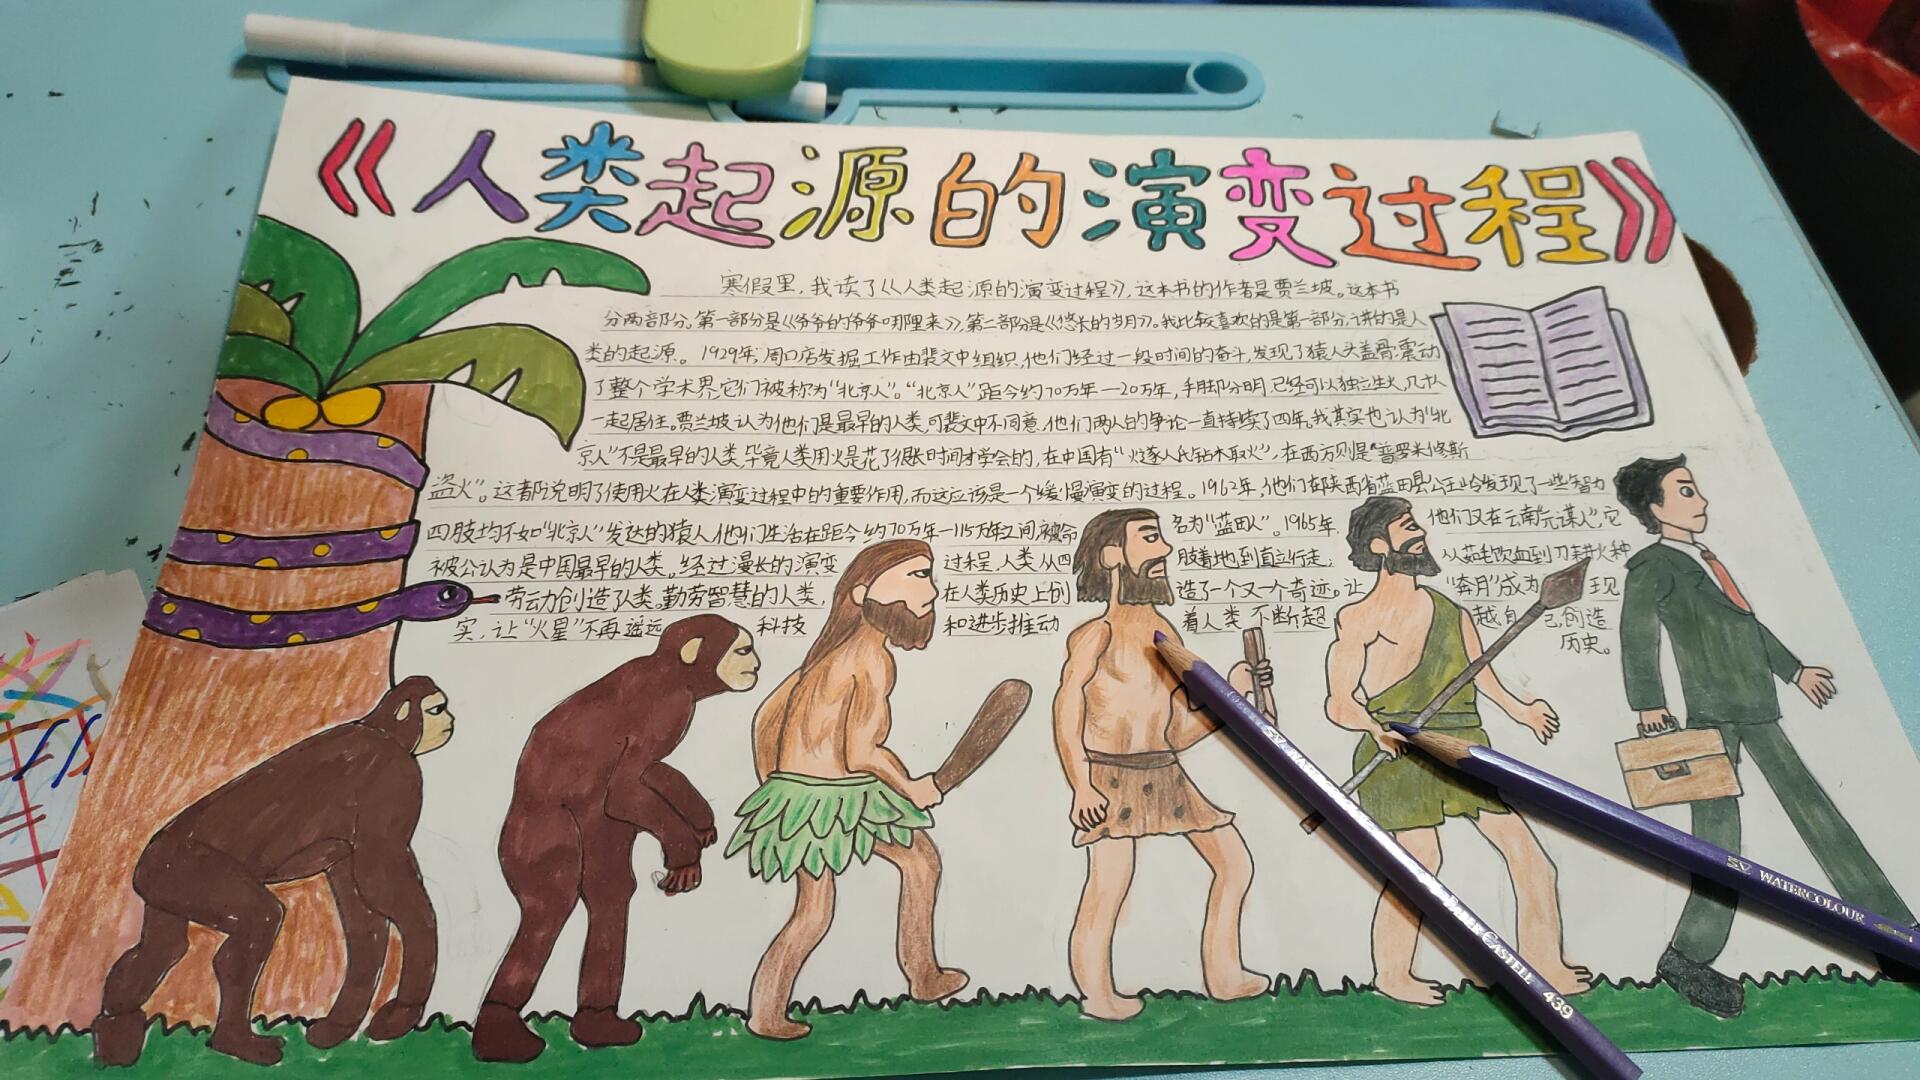 《人类起源的演变过程》
寒假里，我读了《人类起源的演变过程》，这本书的作者是贾兰坡。这本书
分两部分。第一部分是《爷爷的爷爷哪里来》，第二部分是《悠长的岁月》。我比较喜欢的是第一部分，讲的是人
类的起源。1929年，周口店发掘工作由裴文中组织，他们经过一段时间的奋斗，发现了猿人头盖骨，震动
了整个学术界，它们被称为“北京人”。“北京人”距今约70万年—20万年，手脚分明，已经可以独立生火，几十人
一起居住。贾兰坡认为他们是最早的人类，可裴文中不同意，他们两人的争论一直持续了四年。我其实也认为“北
京人”不是最早的人类，毕竟人类用火是花了很长时间才学会的，在中国有“燧人氏钻木取火”，在西方则是“普罗米修斯
盗火”。这都说明了使用火在人类演变过程中的重要作用，而这应该是一个缓慢演变的过程。1962年，他们在陕西省蓝田县公王岭发现了一些智力
四肢均不如“北京人”发达的猿人，他们生活在距今约70万年—115万年之间，被命名为“蓝田人”。1965年，他们又在云南“元谋人”，它
被公认为是中国最早的人类。经过漫长的演变过程，人类从四肢着地到直立行走；从茹毛饮血到刀耕火种
劳动创造了人类。勤劳智慧的人类，在人类历史上创造了一个又一个奇迹。让“奔月”成为现
实，让“火星”不再遥远 科技和进步推动着人类不断超越自己，创造
历史。
WATERCOLOUR
FABER-CASTELL 439